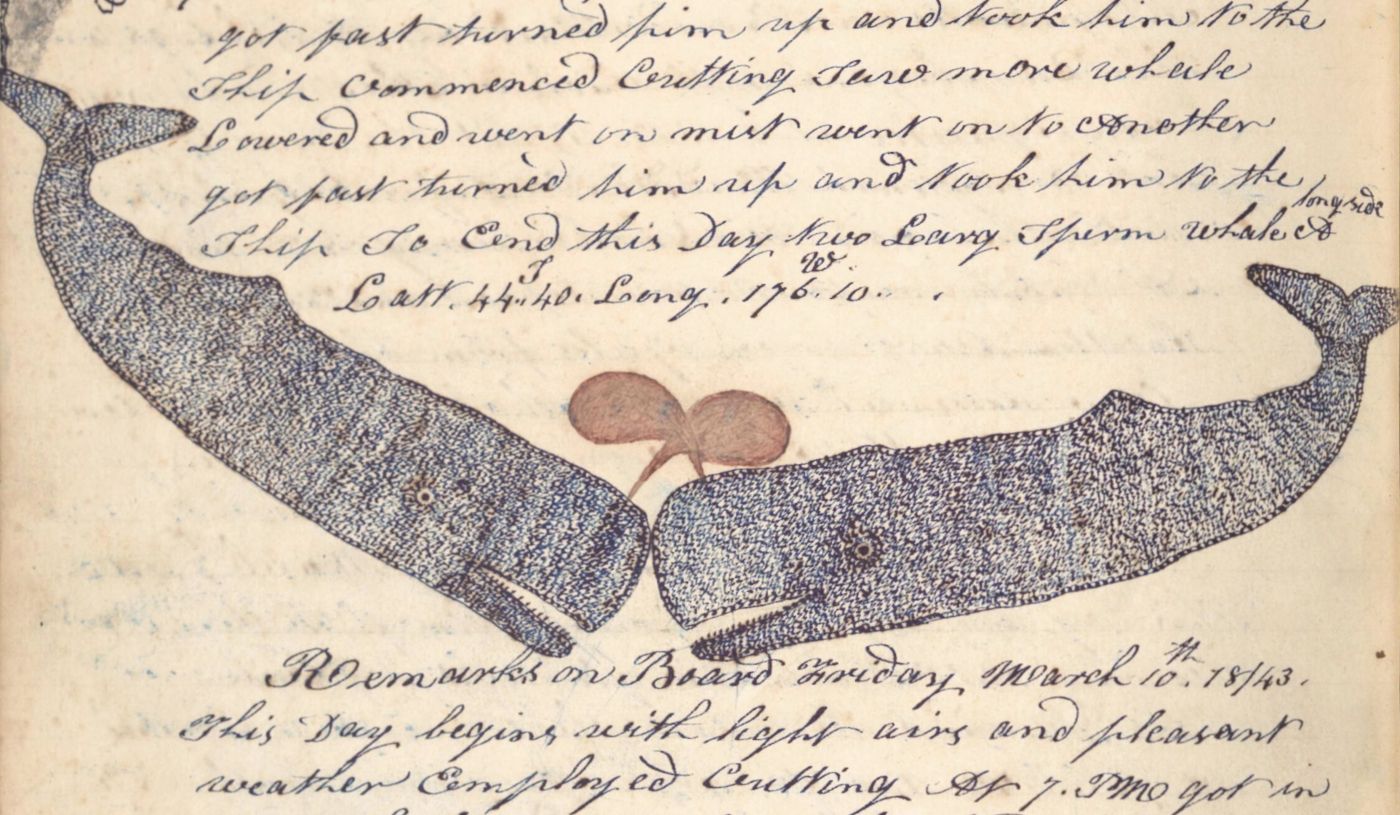 got fast turned him up and took him to the
Ship Commenced Cutting Saw more whale
Lowered and went on mist went on to Another
got fast turned him up and took him to the
Ship So Eend this Day two Larg Sperm whale A longside
Latt. 44.S 40. Long. 176.W 10.
Remarks on Board Friday March 10.th 18/43.
This Day begins with light airs and pleasant
weather Employed Cutting At 7. PM got in